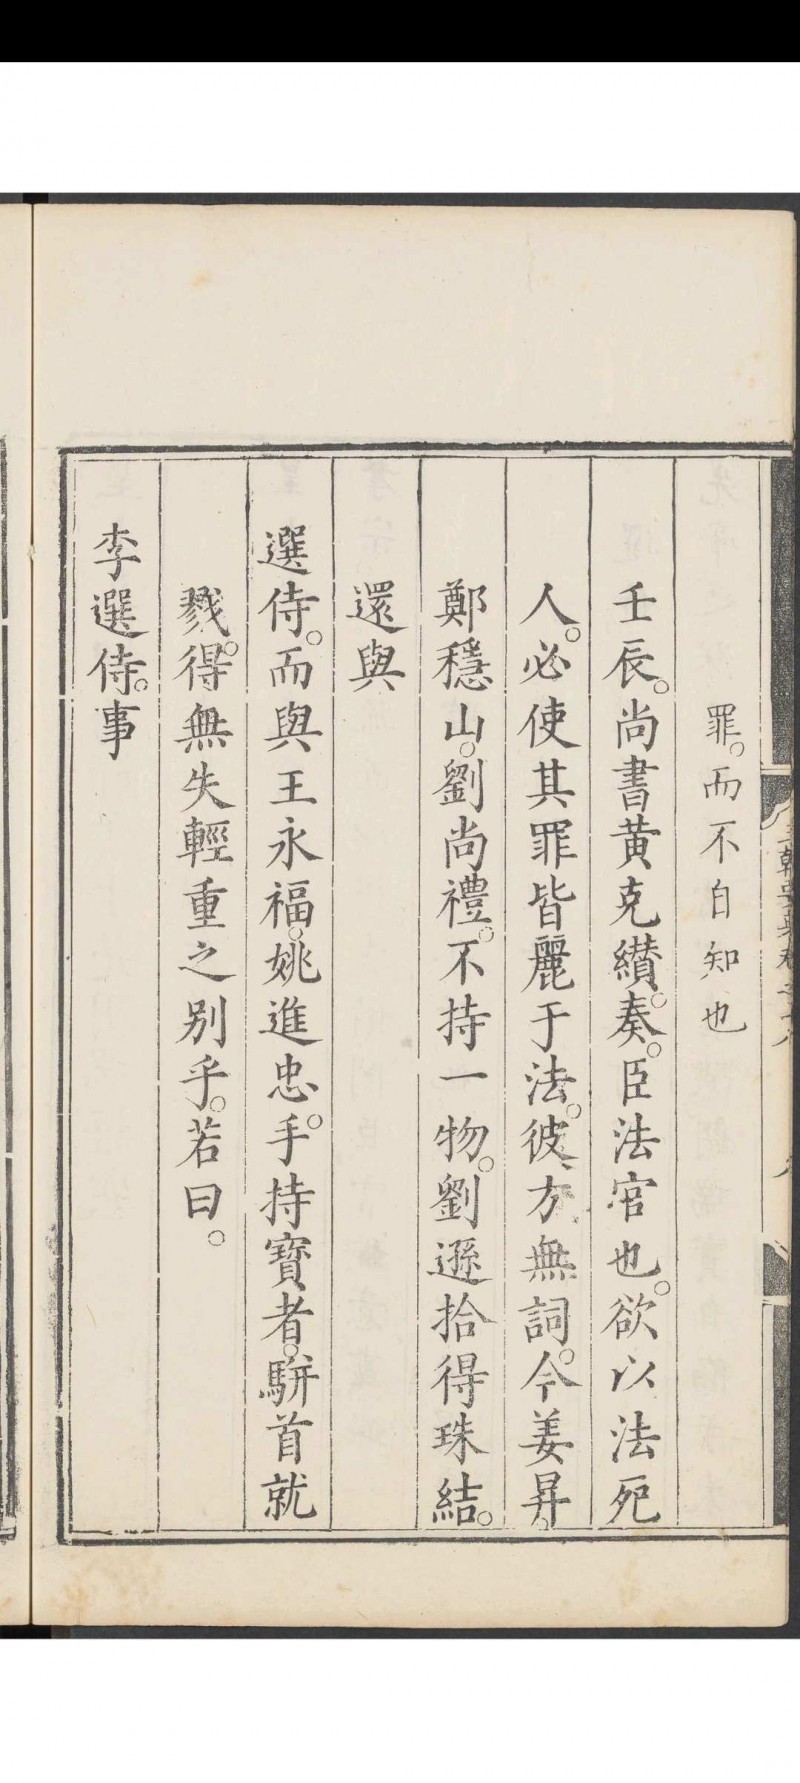 罪。而不自知也
壬辰。尚書黄克纘。奏。臣法官也。欲以法死
人。必使其罪皆麗于法。彼方無詞。今姜昇。
鄭穩山。劉尚禮。不持一物。劉遜拾得珠結。
還與
選侍。而與王永福。姚進忠。手持寳者。駢首就
戮。得無失輕重之别乎。若曰。
李選侍。事